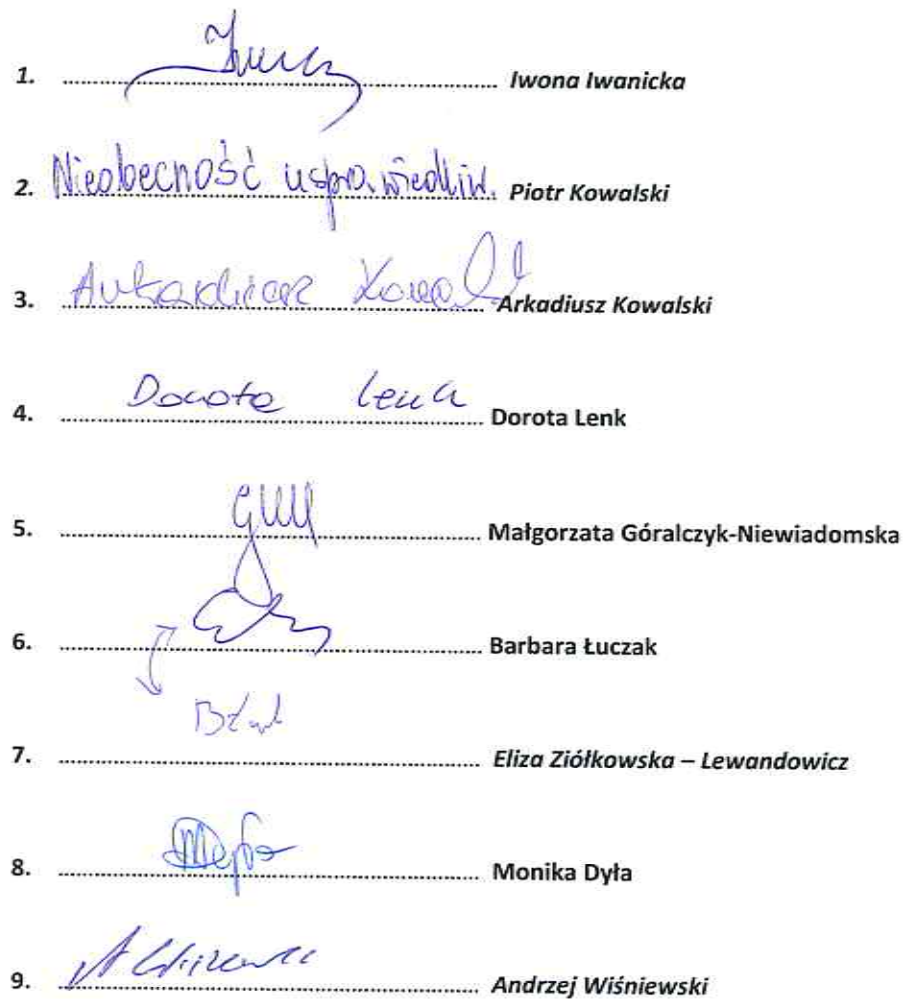 1. .......... Iwona Iwanicka
2. Nieobecność usprawiedliw. Piotr Kowalski
3. Arkadiusz Kowalski Arkadiusz Kowalski
4. Dorota Lenk Dorota Lenk
5. .......... Małgorzata Góralczyk-Niewiadomska
6. .......... Barbara Łuczak
7. .......... Eliza Ziółkowska – Lewandowicz
8. .......... Monika Dyła
9. .......... Andrzej Wiśniewski